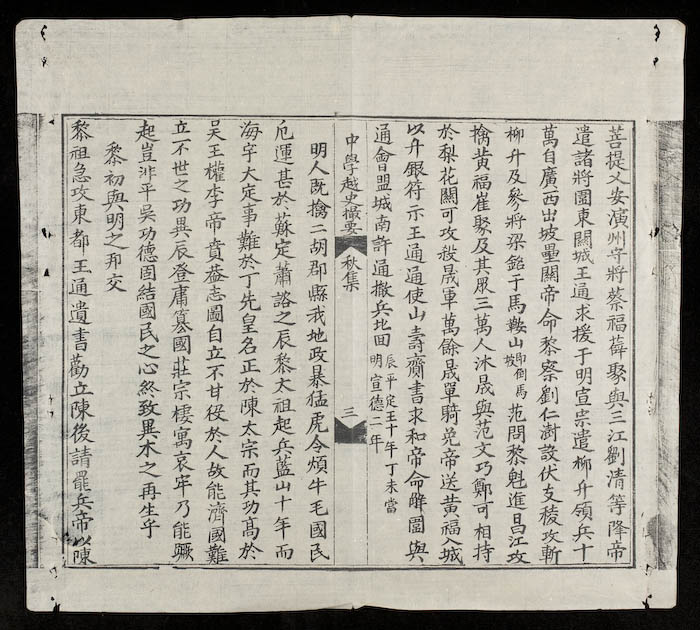 菩提乂安演州守將蔡福薛聚與三江劉清等降帝
遣諸將圍東關城王通求援于明宣宗遣柳升領兵十
萬自廣西出坡壘關帝命黎察劉仁澍設伏支稜攻斬
柳升及參將梁銘于馬鞍山即倒馬坡范問黎魁進昌江攻
擒黄福崔聚及其眾三萬人沐晟與范文巧鄭可相持
於梨花關可攻殺晟軍萬餘晟單騎免帝送黄福入城
以升銀符示王通通使山壽齎書求和帝命解圍與
通會盟城南許通撤兵北回辰平定王十年丁未當明宣德二年
中學越史撮要 秋集 三
明人既擒二胡郡縣我地政暴猛虎令煩牛毛國民
厄運甚於蘇定蕭諮之辰黎太祖起兵藍山十年而
海宇大定事難於丁先皇名正於陳太宗而其功高於
吴王權李帝賁蓋志圖自立不甘役於人故能濟國難
立不世之功異辰登庸篡國莊宗棲寓哀牢乃能蹶
起豈非平吴功德固結國民之心終致異木之再生乎
黎初與明之邦交
黎祖急攻東都王通遺書勸立陳後請罷兵帝以陳